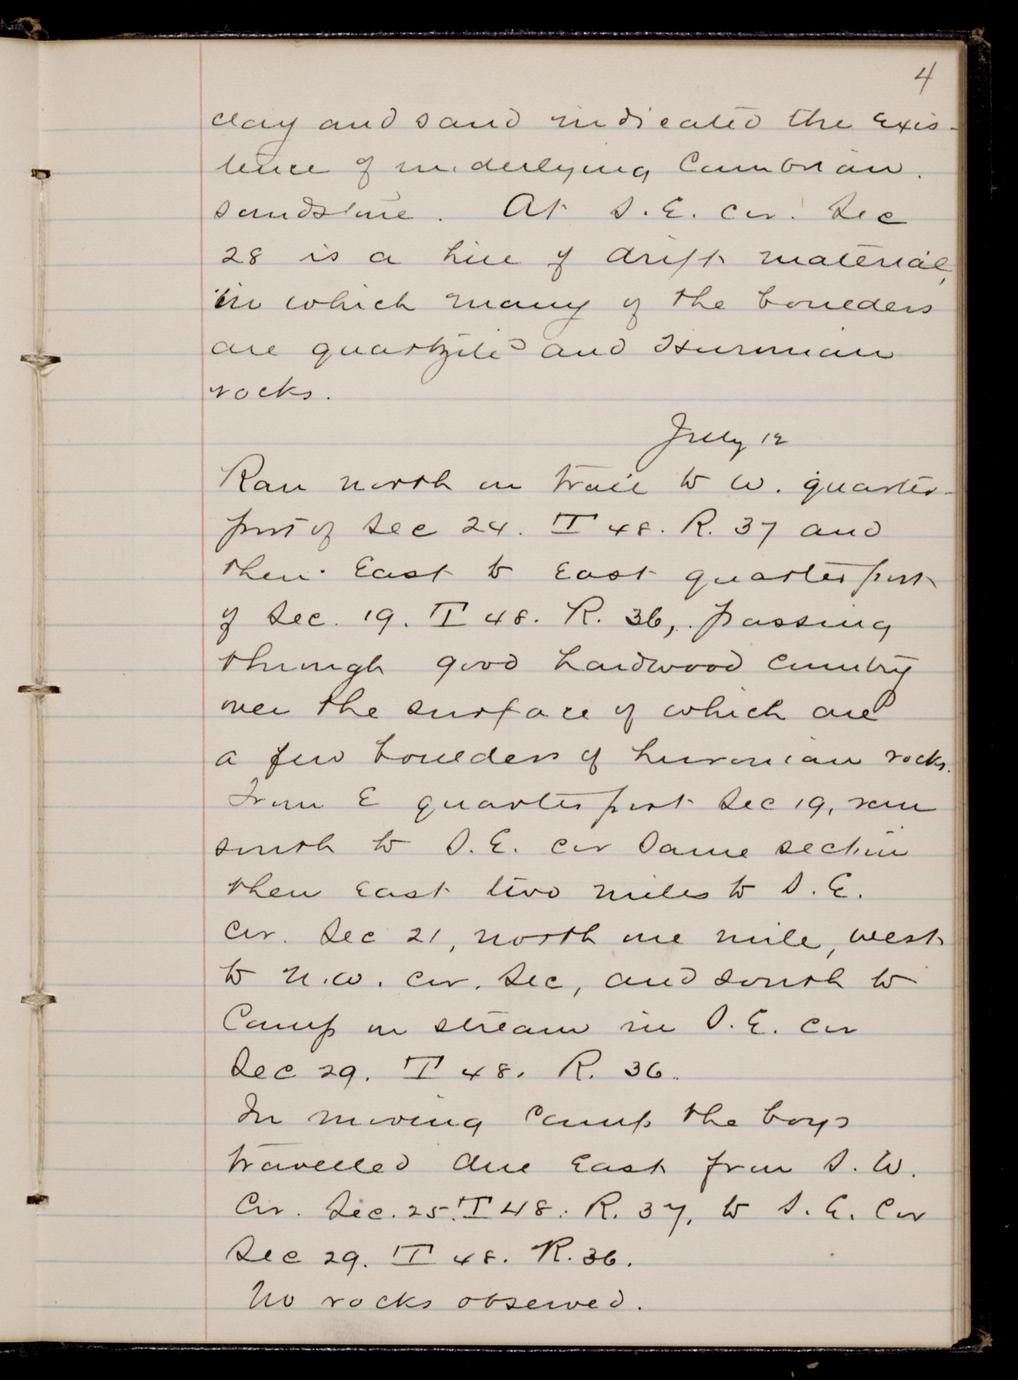 4
clay and sand indicated the exis-
tence of underlying Cambrian
sandstone. At S.E. cor. Sec
28 is a hill of drift material,
in which many of the boulders
are quartzite and Huronian
rocks.
July 12
Ran north on trail to W. quarter-
post of Sec 24. T 48. R. 37 and
then East to East quarter post
of Sec. 19. T 48. R. 36, passing
through good hardwood country
over the surface of which are
a few boulders of huronian rocks.
From E quarter post Sec 19, ran
south to S.E. cor Same section
then East two miles to S.E.
cor. Sec 21, north one mile, west
to N.W. cor. Sec, and south to
Camp on stream in S.E. cor
Sec 29. T 48. R. 36.
In moving Camp the boys
travelled due East from S.W.
Cor. Sec. 25. T 48. R. 37, to S.E. Cor
Sec 29. T 48. R. 36.
No rocks observed.